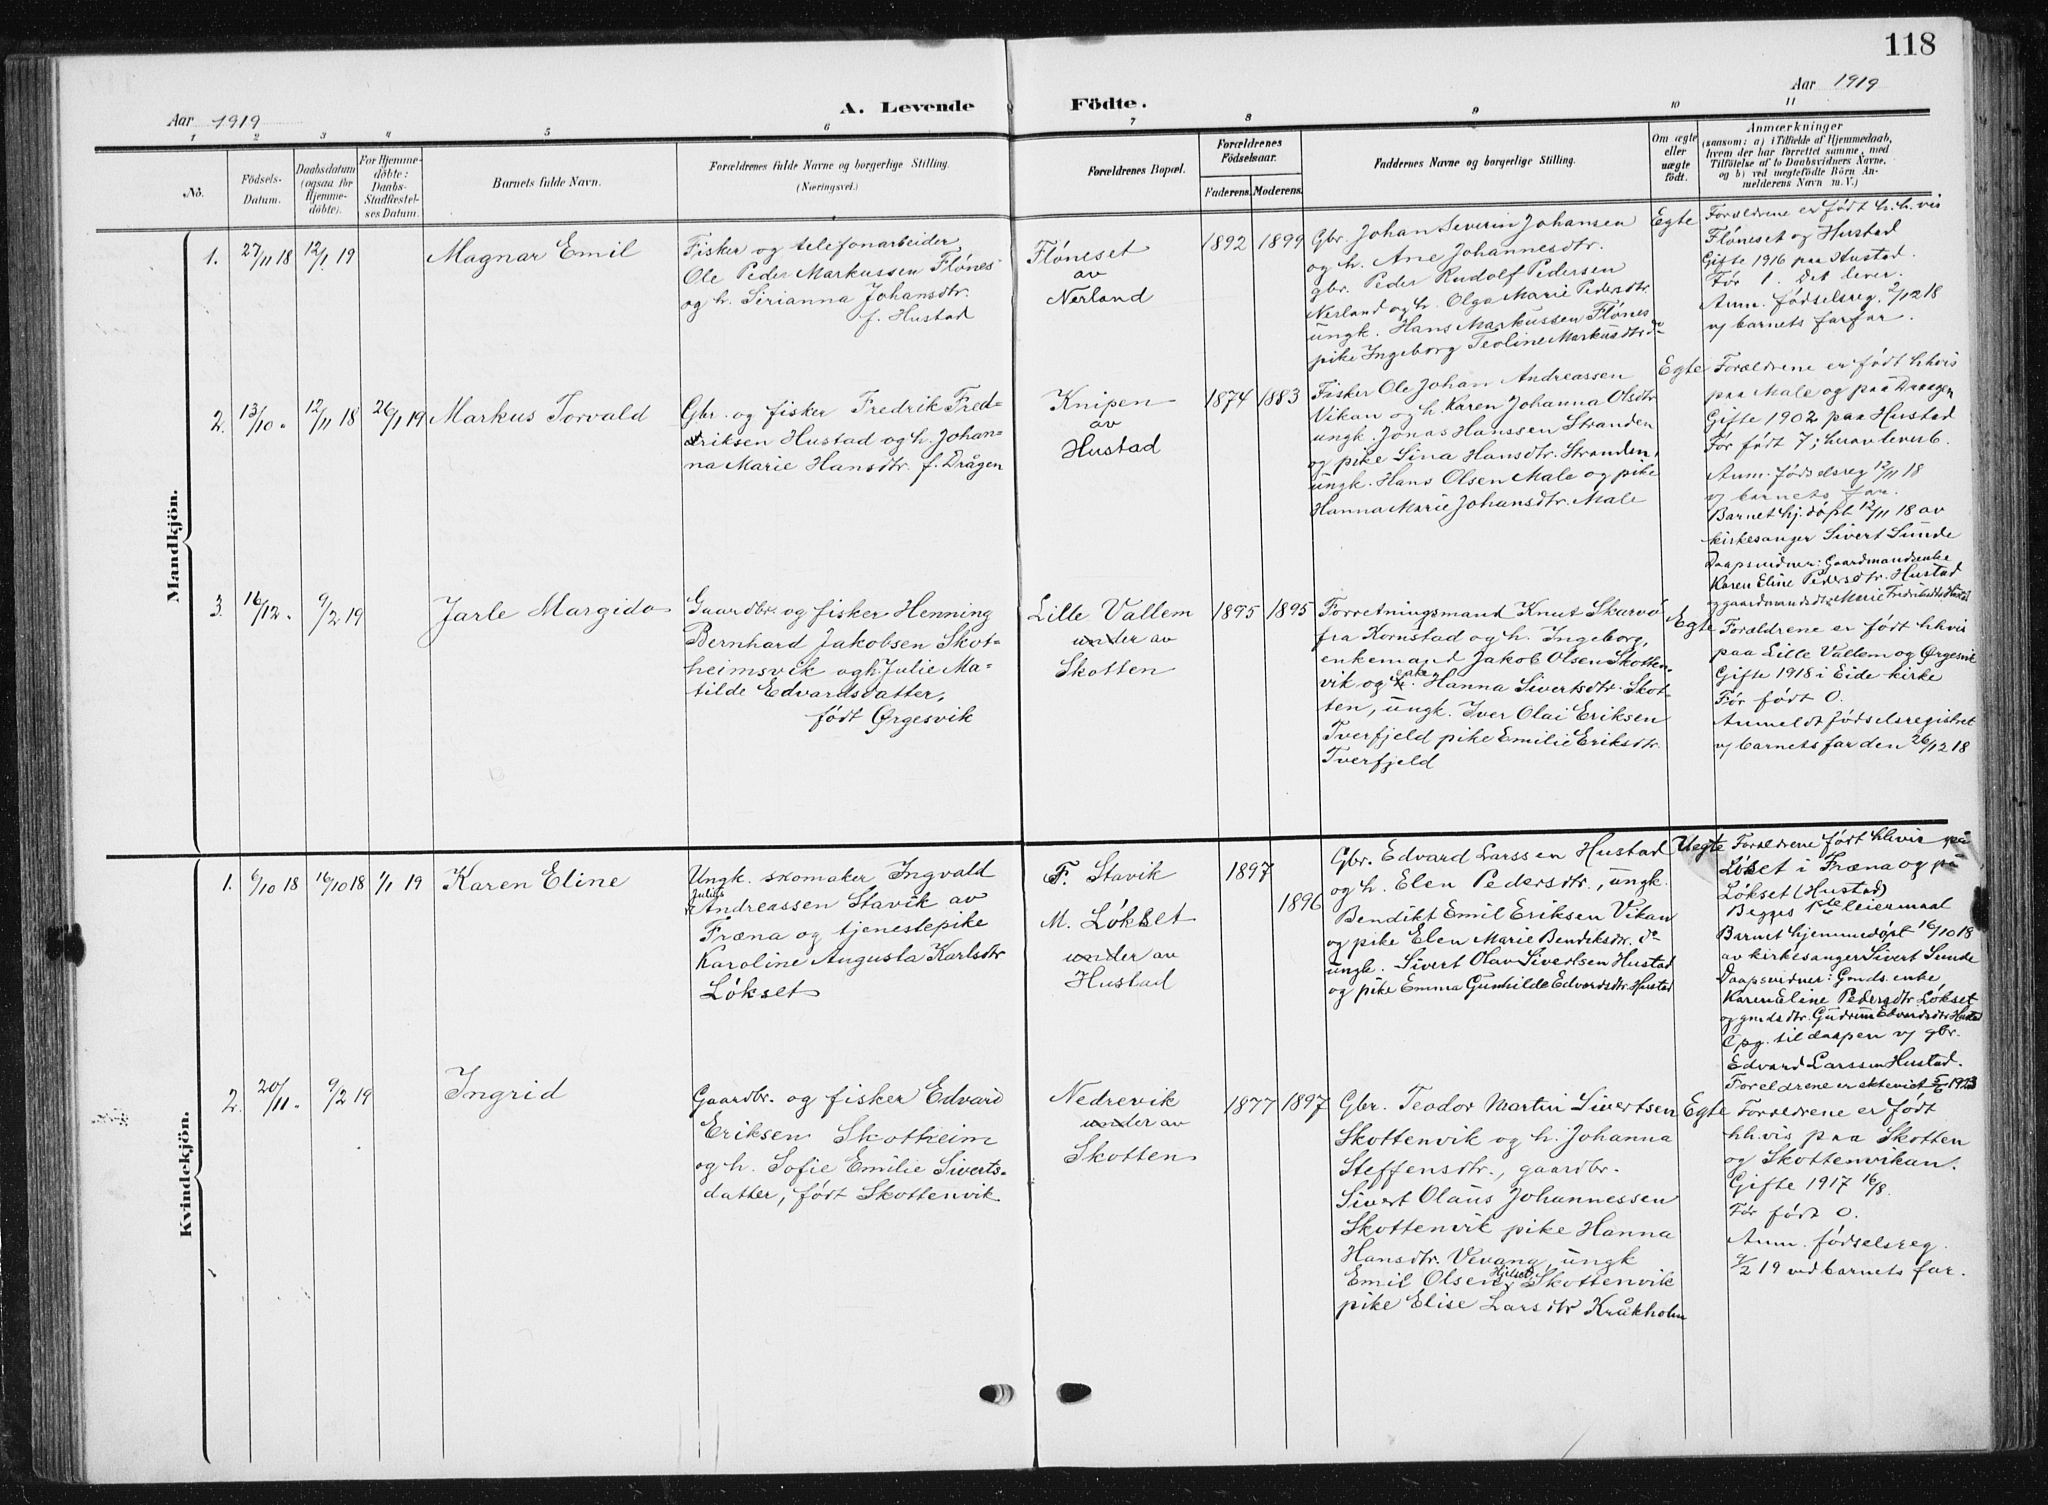 118
Aar 1919
A. Levende Födte.
Aar 1919
1 2 3 4 5 6 7 8 9 10 11
No.
Födsels-
Datum.
Daabsdatum
(ogsaa for
Hjemme-
döbte).
For Hjemme-
döbte:
Daabs-
Stadfæstel-
ses Datum.
Barnets fulde Navn.
Forældrenes fulde Navne og borgerlige Stilling.
(Næringsvei.)
Forældrenes Bopæl.
Forældrenes
Födselsaar.
Faderens. Moderens.
Faddernes Navne og borgerlige Stilling.
Om ægte
eller
uægte
födt.
Anmærkninger
(saasom: a) i Tilfælde af Hjemmedaab,
hvem der har forrettet samme, med
Tilföielse af to Daabsvidners Navne,
og b) ved uægtefödte Börn An-
melderens Navn m. V.)
Mandkjön.
1. 27/11 18 12/1 19
Magnar Emil
Fisker og telefonarbeider
Ole Peder Markussen Flønes
og h. Sirianna Johansdtr.
f. Hustad
Fløneset
av
Nerland
1892 1899
Gbr. Johan Severin Johansen
og h. Ane Johannesdtr.
gbr. Peder Rudolf Pedersen
Nerland og h. Olga Marie Pedersdtr.
ungk. Hans Markussen Flønes
pike Ingeborg Teoline Markusdtr do
Egte
Forældrene er født h.h.vis
Fløneset og Hustad
Gifte 1916 paa Hustad.
Før 1. Det lever.
Anm. fødselsreg. 2/12 18
v/ barnets farfar.
2. 13/10 " 12/11 18 26/1 19
Markus Torvald
Gbr. og fisker Fredrik Fred-
riksen Hustad og h. Johan-
na Marie Hansdtr. f. Drågen
Knipen
av
Hustad
1874 1883
Fisker Ole Johan Andreassen
Vikan og h. Karen Johanna Olsdtr
ungk. Jonas Hanssen Stranden
og pike Lina Hansdtr. Stranden,
ungk. Hans Olsen Male og pike
Hanna Marie Johansdtr. Male
Egte
Forældrene er født hhvis
paa Male og paa Draagen
Gifte 1902 paa Hustad
Før født 7; hvav lever 6.
Anm. fødselsreg 12/11 18
v/ barnets far.
Barnet hj.døpt 12/11 18 av
kirkesanger Sivert Sunde
Daapsvidner: Gaardmandsenke
Karen Eline Pedersdtr. Hustad
og gaardmandsdtr. Marie Fredriksdtr Hustad
3. 16/12 " 9/2 19
Jarle Margido
Gaardbr. og fisker Henning
Bernhard Jakobsen Skot-
heimsvik og h Julie Ma-
tilde Edvardsdatter,
født Ørgesvik
Lille Vallem
under av
Skotten
1895 1895
Forretningsmand Knut Skarvø
fra Kornstad og h. Ingeborg,
enkemand Jakob Olsen Skotten-
vik og enke Hanna Sivertsdtr. Skot-
ten, ungk. Iver Olai Eriksen
Tverfjeld pike Emilie Eriksdtr.
Tverfjeld
Egte
Forældrene er født hhvis
paa Lille Vallem og Ørgesvik
Gifte 1918 i Eide kirke
Før født 0.
Anmeldt fødselsregistret
v/ barnets far den 26/12 18
Kvindekjön.
1. 6/10 18 16/10 18 1/1 19
Karen Eline
Ungk. skomaker Ingvald
Julius
Andreassen Stavik av
Fræna og tjenestepike
Karoline Augusta Karlsdtr
Løkset
F. Stavik
M. Løkset
under av
Hustad
1897
1896
Gbr. Edvard Larssen Hustad
og h. Elen Pedersdtr., ungk.
Bendikt Emil Eriksen Vikan
og pike Elen Marie Bendiksdtr. do
ungk. Sivert Olav Sivertsen Hustad
og pike Emma Gunhilde Edvardsdtr. Hustad
Uegte
Forældrene født hhvis på
Løkset i Fræna og på
Løkset (Hustad)
Begges 1ste leiermaal
Barnet hjemmedøpt 16/10 18
av kirkesanger Sivert Sunde
Daapsvidner: Gmds. enke
Karen Eline Pedersdtr Løkset
og gmdsdtr. Gudrun Edvardsdtr Hustad
Opg. til daapen v/ gbr.
Edvard Larssen Hustad.
Foreldrene er ektevidt 5/6 1923
2. 20/11 " 9/2 19
Ingrid
Gaardbr. og fisker Edvard
Eriksen Skotheim
og h. Sofie Emilie Siverts-
datter, født Skottenvik
Nedrevik
under av
Skotten
1877 1897
Gbr. Teodor Martin Sivertsen
Skottenvik og h. Johanna
Steffensdtr., gaardbr.
Sivert Olaus Johannessen
Skottenvik pike Hanna
Hansdtr. Vevang, ungk
Emil Olsen Hjelset, Skottenvik
pike Elise Larsdtr Kråkholm
Egte
Forældrene er født
hh.vis paa Skotten
og Skottenvikan.
Gifte 1917 16/8.
Før født 0.
Anm. fødselsreg.
9/2 19 ved barnets far.